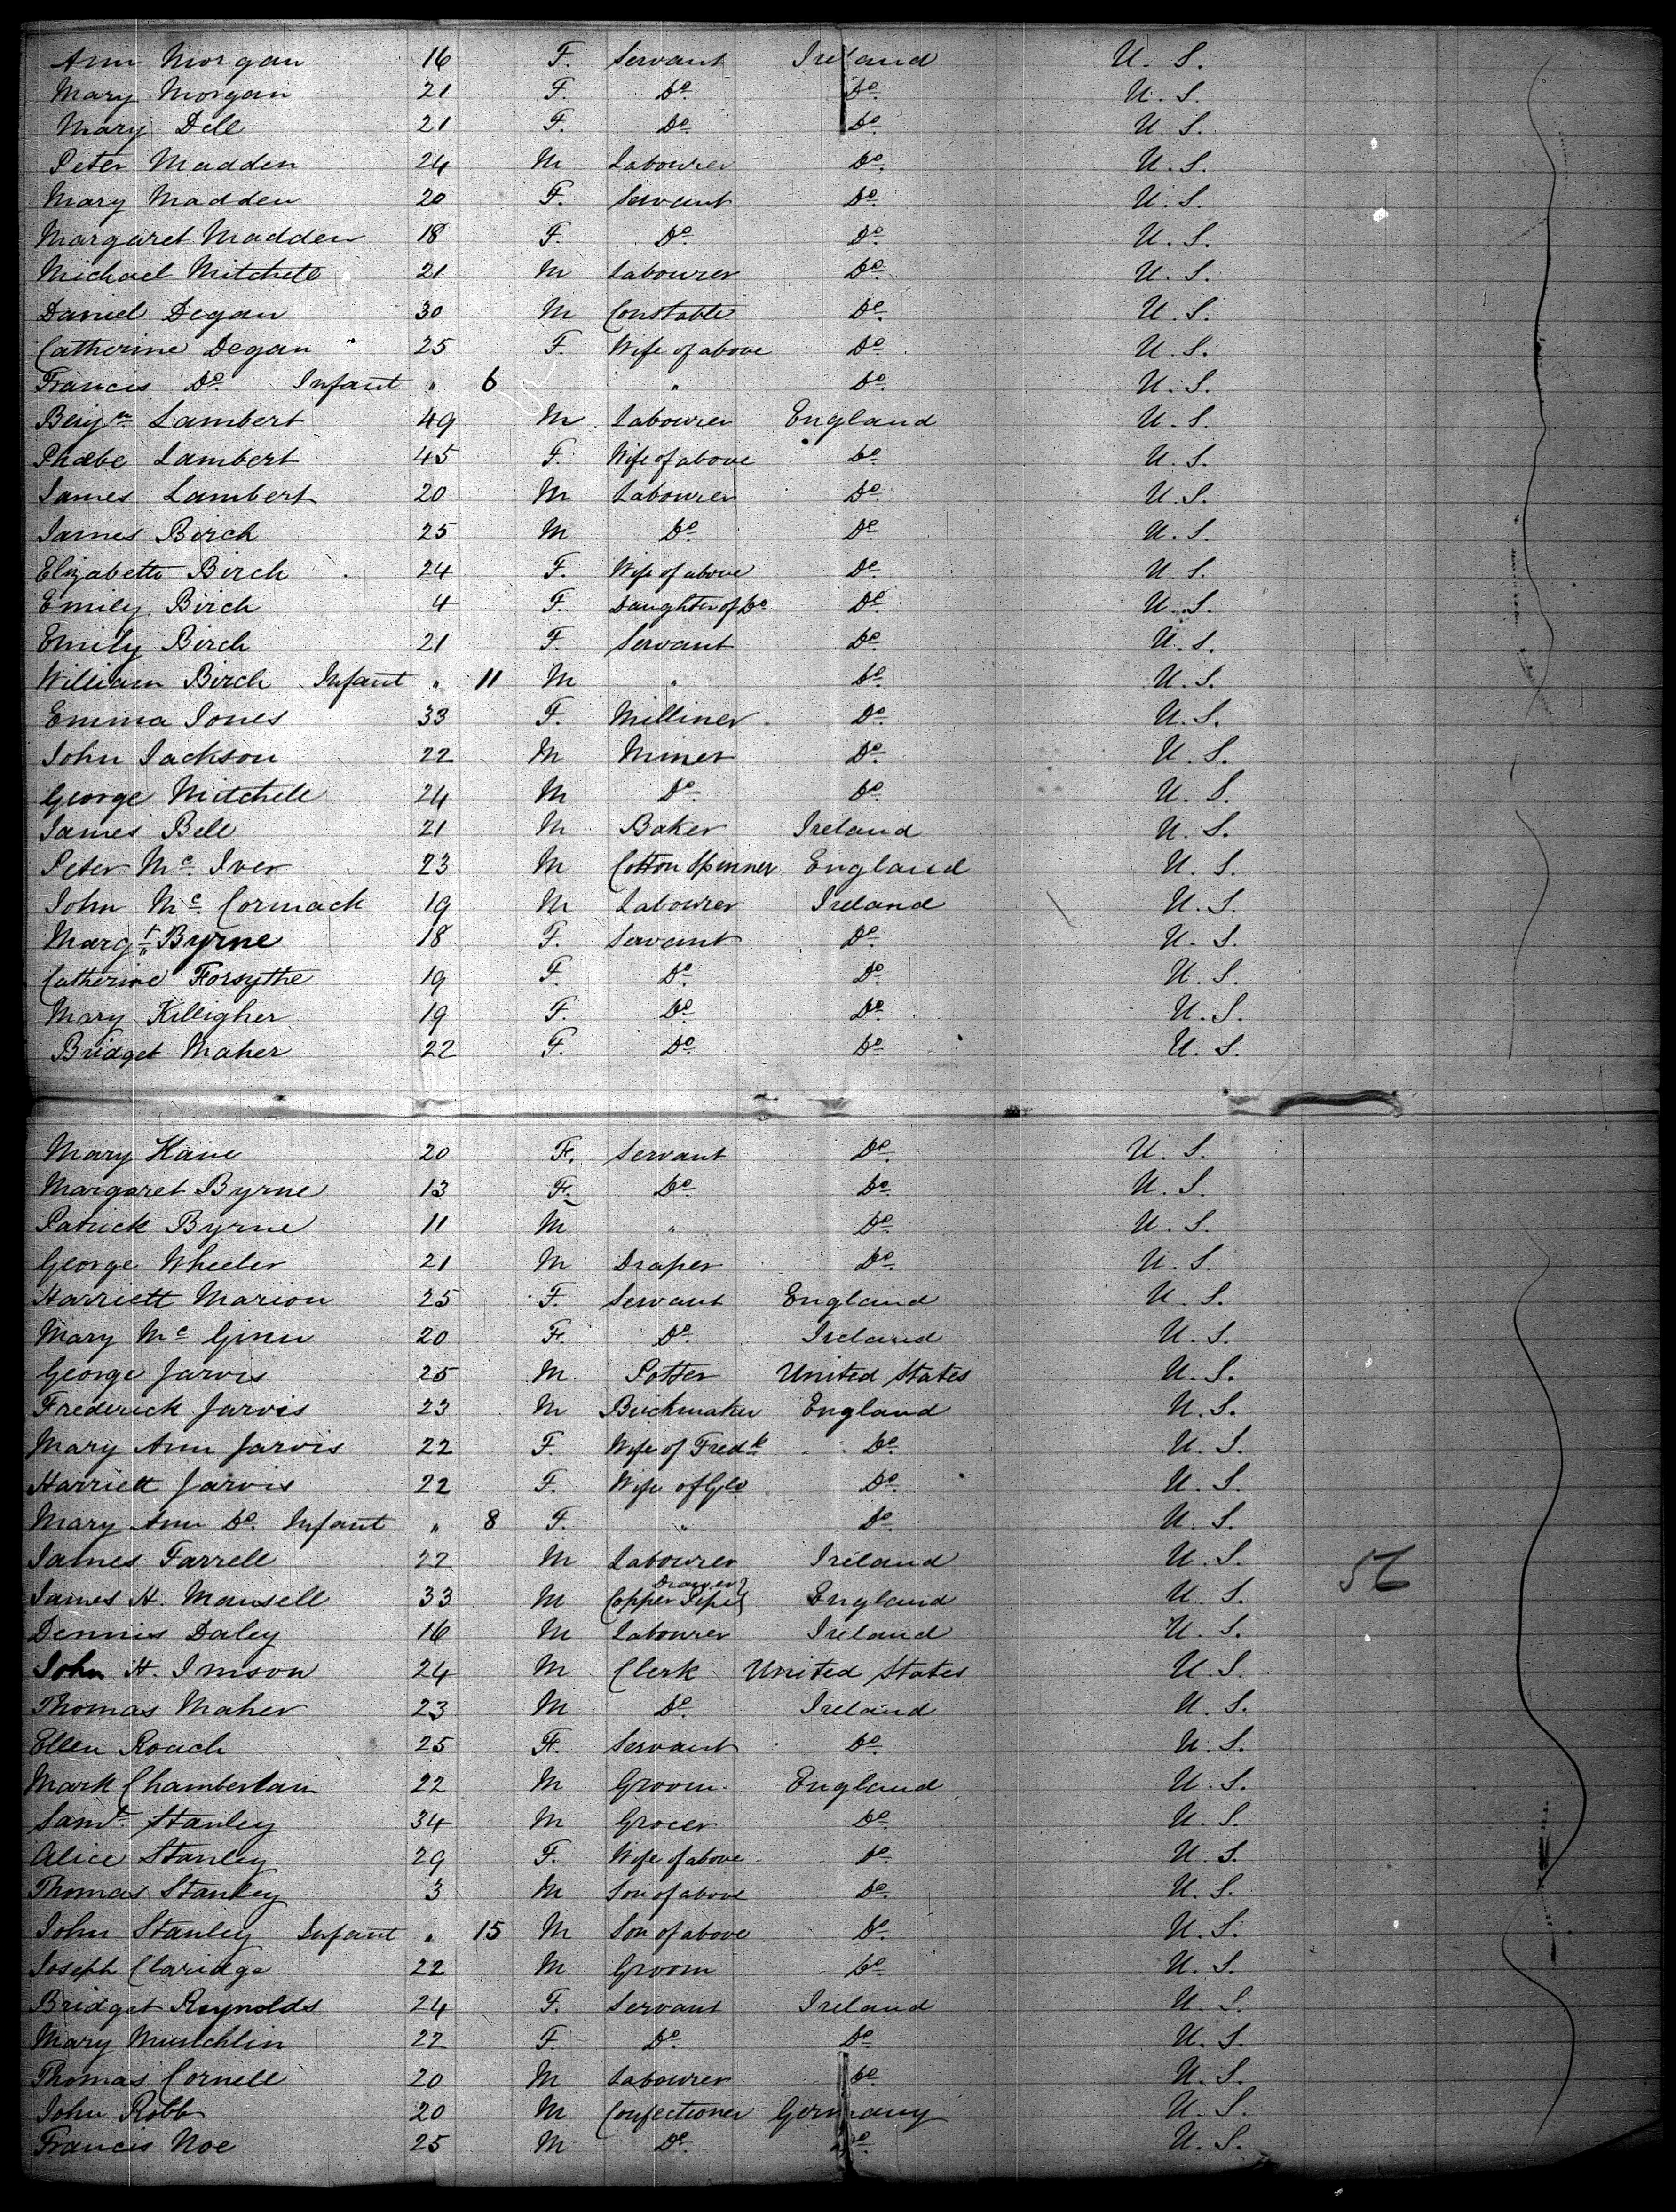 Ann Morgan 16 F. Servant Ireland U. S.
Mary Morgan 21 F. Do. Do. U. S.
Mary Dell 21 F. Do. Do. U. S.
Peter Madden 24 M Labourer Do. U. S.
Mary Madden 20 F. Servant Do. U. S.
Margaret Madden 18 F. Do. Do. U. S.
Michael Mitchell 21 M Labourer Do. U. S.
Daniel Degan 30 M Constable Do. U. S.
Catherine Degan " 25 F. Wife of above Do. U. S.
Francis Do. Infant " 6 " Do. U. S.
Benjn Lambert 49 M. Labourer England U. S.
Phœbe Lambert 45 F. Wife of above Do. U. S.
James Lambert 20 M Labourer Do. U. S.
James Birch 25 M Do. Do. U. S.
Elizabeth Birch 24 F. Wife of above Do. U. S.
Emily Birch 4 F. Daughter of Do. Do. U. S.
Emily Birch 21 F. Servant Do. U. S.
William Birch Infant " 11 M " Do. U. S.
Emma Jones 33 F. Milliner Do. U. S.
John Jackson 22 M Miner Do. U. S.
George Mitchell 24 M Do. Do. U. S.
James Bell 21 M Baker Ireland U. S.
Peter Mc. Iver 23 M Cotton Spinner England U. S.
John Mc. Cormack 19 M Labourer Ireland U. S.
Margt. Byrne 18 F. Servant Do. U. S.
Catherine Forsythe 19 F. Do. Do. U. S.
Mary Killigher 19 F. Do. Do. U. S.
Bridget Maher 22 F. Do. Do. U. S.
Mary Kane 20 F. Servant Do. U. S.
Margaret Byrne 13 F. Do. Do. U. S.
Patrick Byrne 11 M " Do. U. S.
George Wheeler 21 M Draper Do. U. S.
Harriett Marion 25 F. Servant England U. S.
Mary Mc Ginn 20 F. Do. Ireland U. S.
George Jarvis 25 M. Potter United States U. S.
Frederick Jarvis 23 M Birchmaker England U. S.
Mary Ann Jarvis 22 F. Wife of Fredk Do. U. S.
Harriett Jarvis 22 F. Wife of Geo Do. U. S.
Mary Ann Do. Infant " 8 F. " Do. U. S.
James Farrell 22 M Labourer Ireland U. S.
James H. Mansell 33 M Copper Pipe Drawer England U. S.
Dennis Daley 16 M Labourer Ireland U. S.
John H. Imson 24 M Clerk United States U. S.
Thomas Maher 23 M Do. Ireland U. S.
Ellen Roach 25 F. Servant Do. U. S.
Mark Chamberlain 22 M Groom England U. S.
Saml. Stanley 34 M Grocer Do. U. S.
Alice Stanley 29 F. Wife of above Do. U. S.
Thomas Stanley 3 M Son of above Do. U. S.
John Stanley Infant " 15 M Son of above Do. U. S.
Joseph Claridge 22 M Groom Do. U. S.
Bridget Reynolds 24 F. Servant Ireland U. S.
Mary 22 F. Do. Do. U. S.
Thomas Cornell 20 M Labourer Do. U. S.
John Robb 20 M Confectioner Germany U. S.
Francis Noe 25 M Do. Do. U. S.